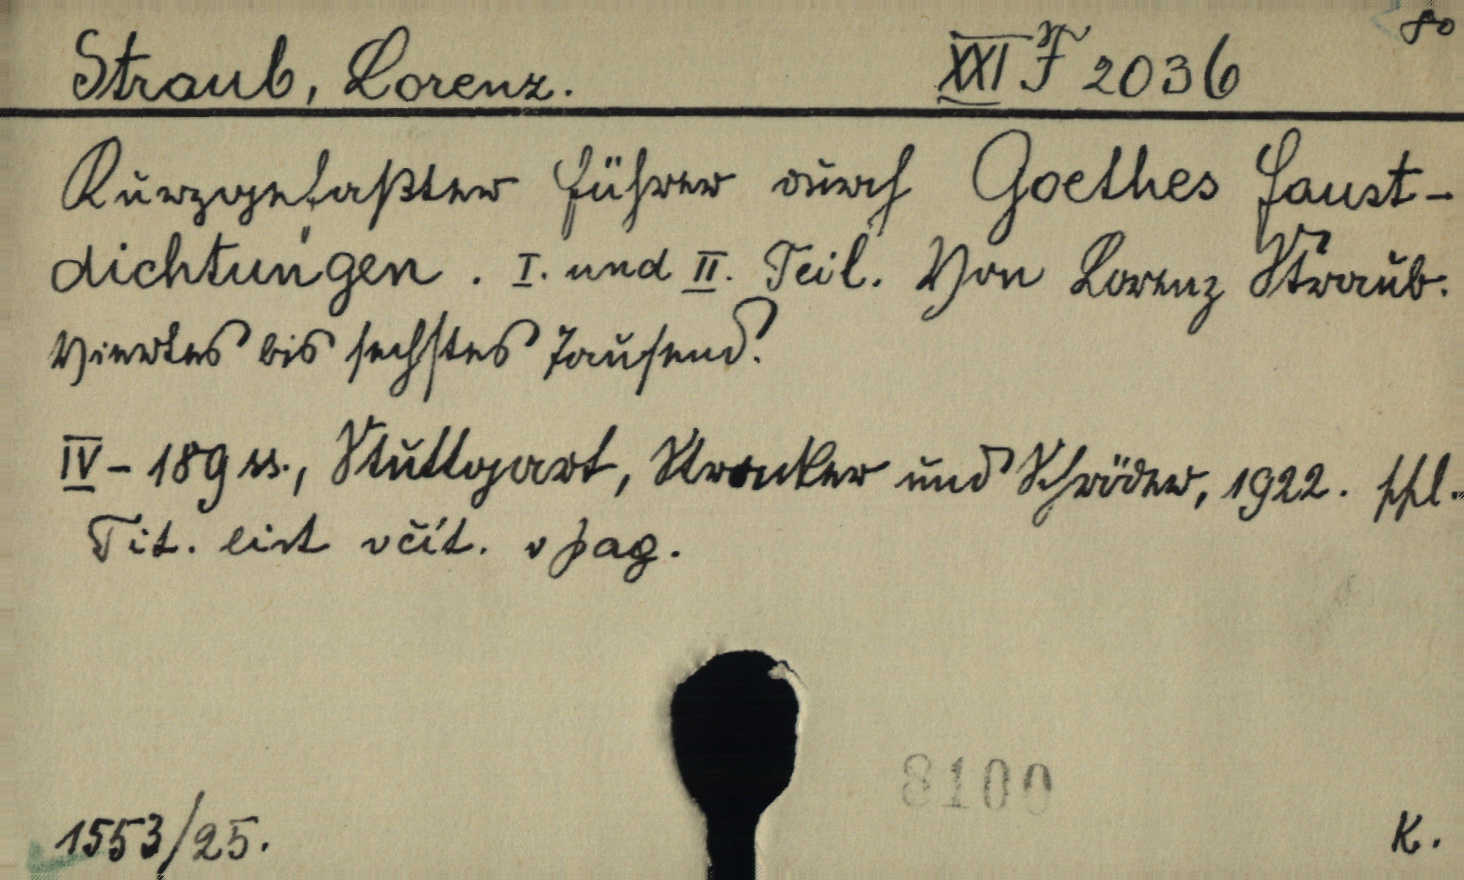 80
Straub, Lorenz. XXI F 2036
Kurzgefaßter Führer durch Goethes Faust-
dichtungen. I. und II. Teil. Von Lorenz Straub.
Viertes bis sechstes Tausend.
IV - 189 ss., Stuttgart, Strecker und Schröder, 1922. ppl.
Tit. list včít. v pag.
8100
1553/25. K.